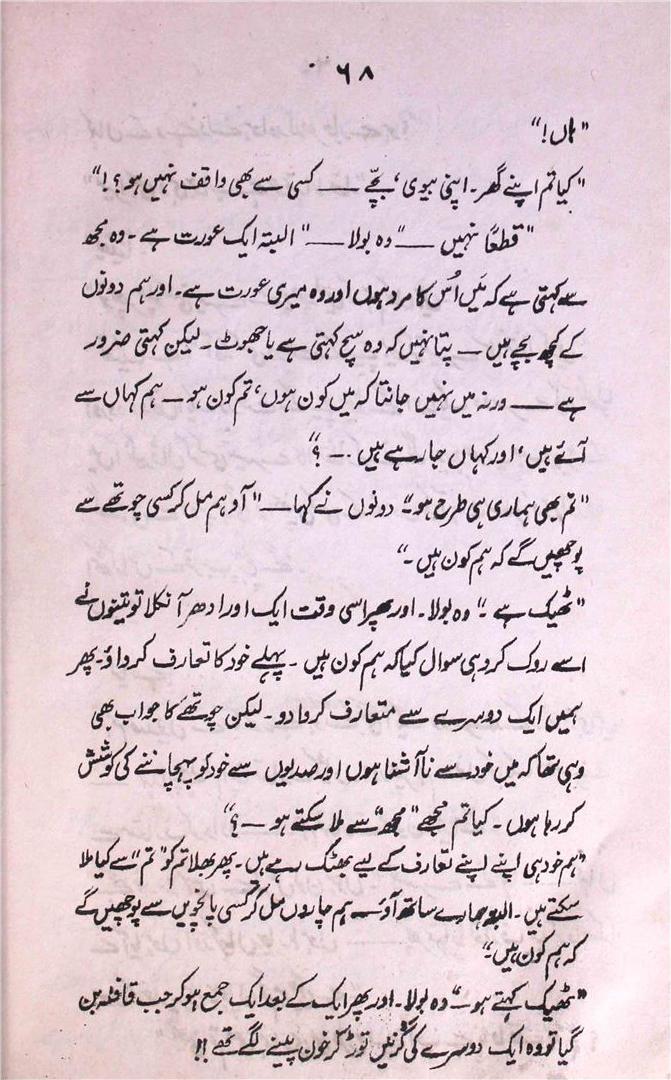 ۶۸
"ہاں!"
"کیا تم اپنے گھر۔ اپنی بیوی، بچّے —— کسی سے بھی واقف نہیں ہو؟!"
"قطعاً نہیں ——" وہ بولا —— "البتہ ایک عورت ہے۔ وہ مجھ
سے کہتی ہے کہ مَیں اُس کا مرد ہوں اور وہ میری عورت ہے۔ اور ہم دونوں
کے کچھ بچے ہیں — پتا نہیں کہ وہ سچ کہتی ہے یا جھوٹ۔ لیکن کہتی ضرور
ہے —— ورنہ میں نہیں جانتا کہ میں کون ہوں، تم کون ہو — ہم کہاں سے
آئے ہیں، اور کہاں جا رہے ہیں ۔ — ؟"
"تم بھی ہماری ہی طرح ہو۔" دونوں نے کہا — "آؤ ہم مل کر کسی چوتھے سے
پوچھیں گے کہ ہم کون ہیں ۔"
"ٹھیک ہے ۔" وہ بولا۔ اور پھر اسی وقت ایک اور ادھر آ نکلا تو تینوں نے
اسے روک کر وہی سوال کیا کہ ہم کون ہیں ۔ پہلے خود کا تعارف کرواؤ۔ پھر
ہمیں ایک دوسرے سے متعارف کروا دو۔ لیکن چوتھے کا جواب بھی
وہی تھا کہ میں خود سے ناآشنا ہوں اور صدیوں سے خود کو پہچاننے کی کوشش
کر رہا ہوں ۔ کیا تم مجھے "مجھ" سے ملا سکتے ہو — ؟"
"ہم خود ہی اپنے اپنے تعارف کے لیے بھٹک رہے ہیں۔ پھر بھلا تم کو "تم" سے کیا ملا
سکتے ہیں ۔ البتہ ہمارے ساتھ آؤ۔ ہم چاروں مل کر کسی پانچویں سے پوچھیں گے
کہ ہم کون ہیں۔"
"ٹھیک کہتے ہو —" وہ بولا۔ اور پھر ایک کے بعد ایک جمع ہو کر جب قافلہ بن
گیا تو وہ ایک دوسرے کی گردنیں توڑ کر خون پینے لگے تھے !!